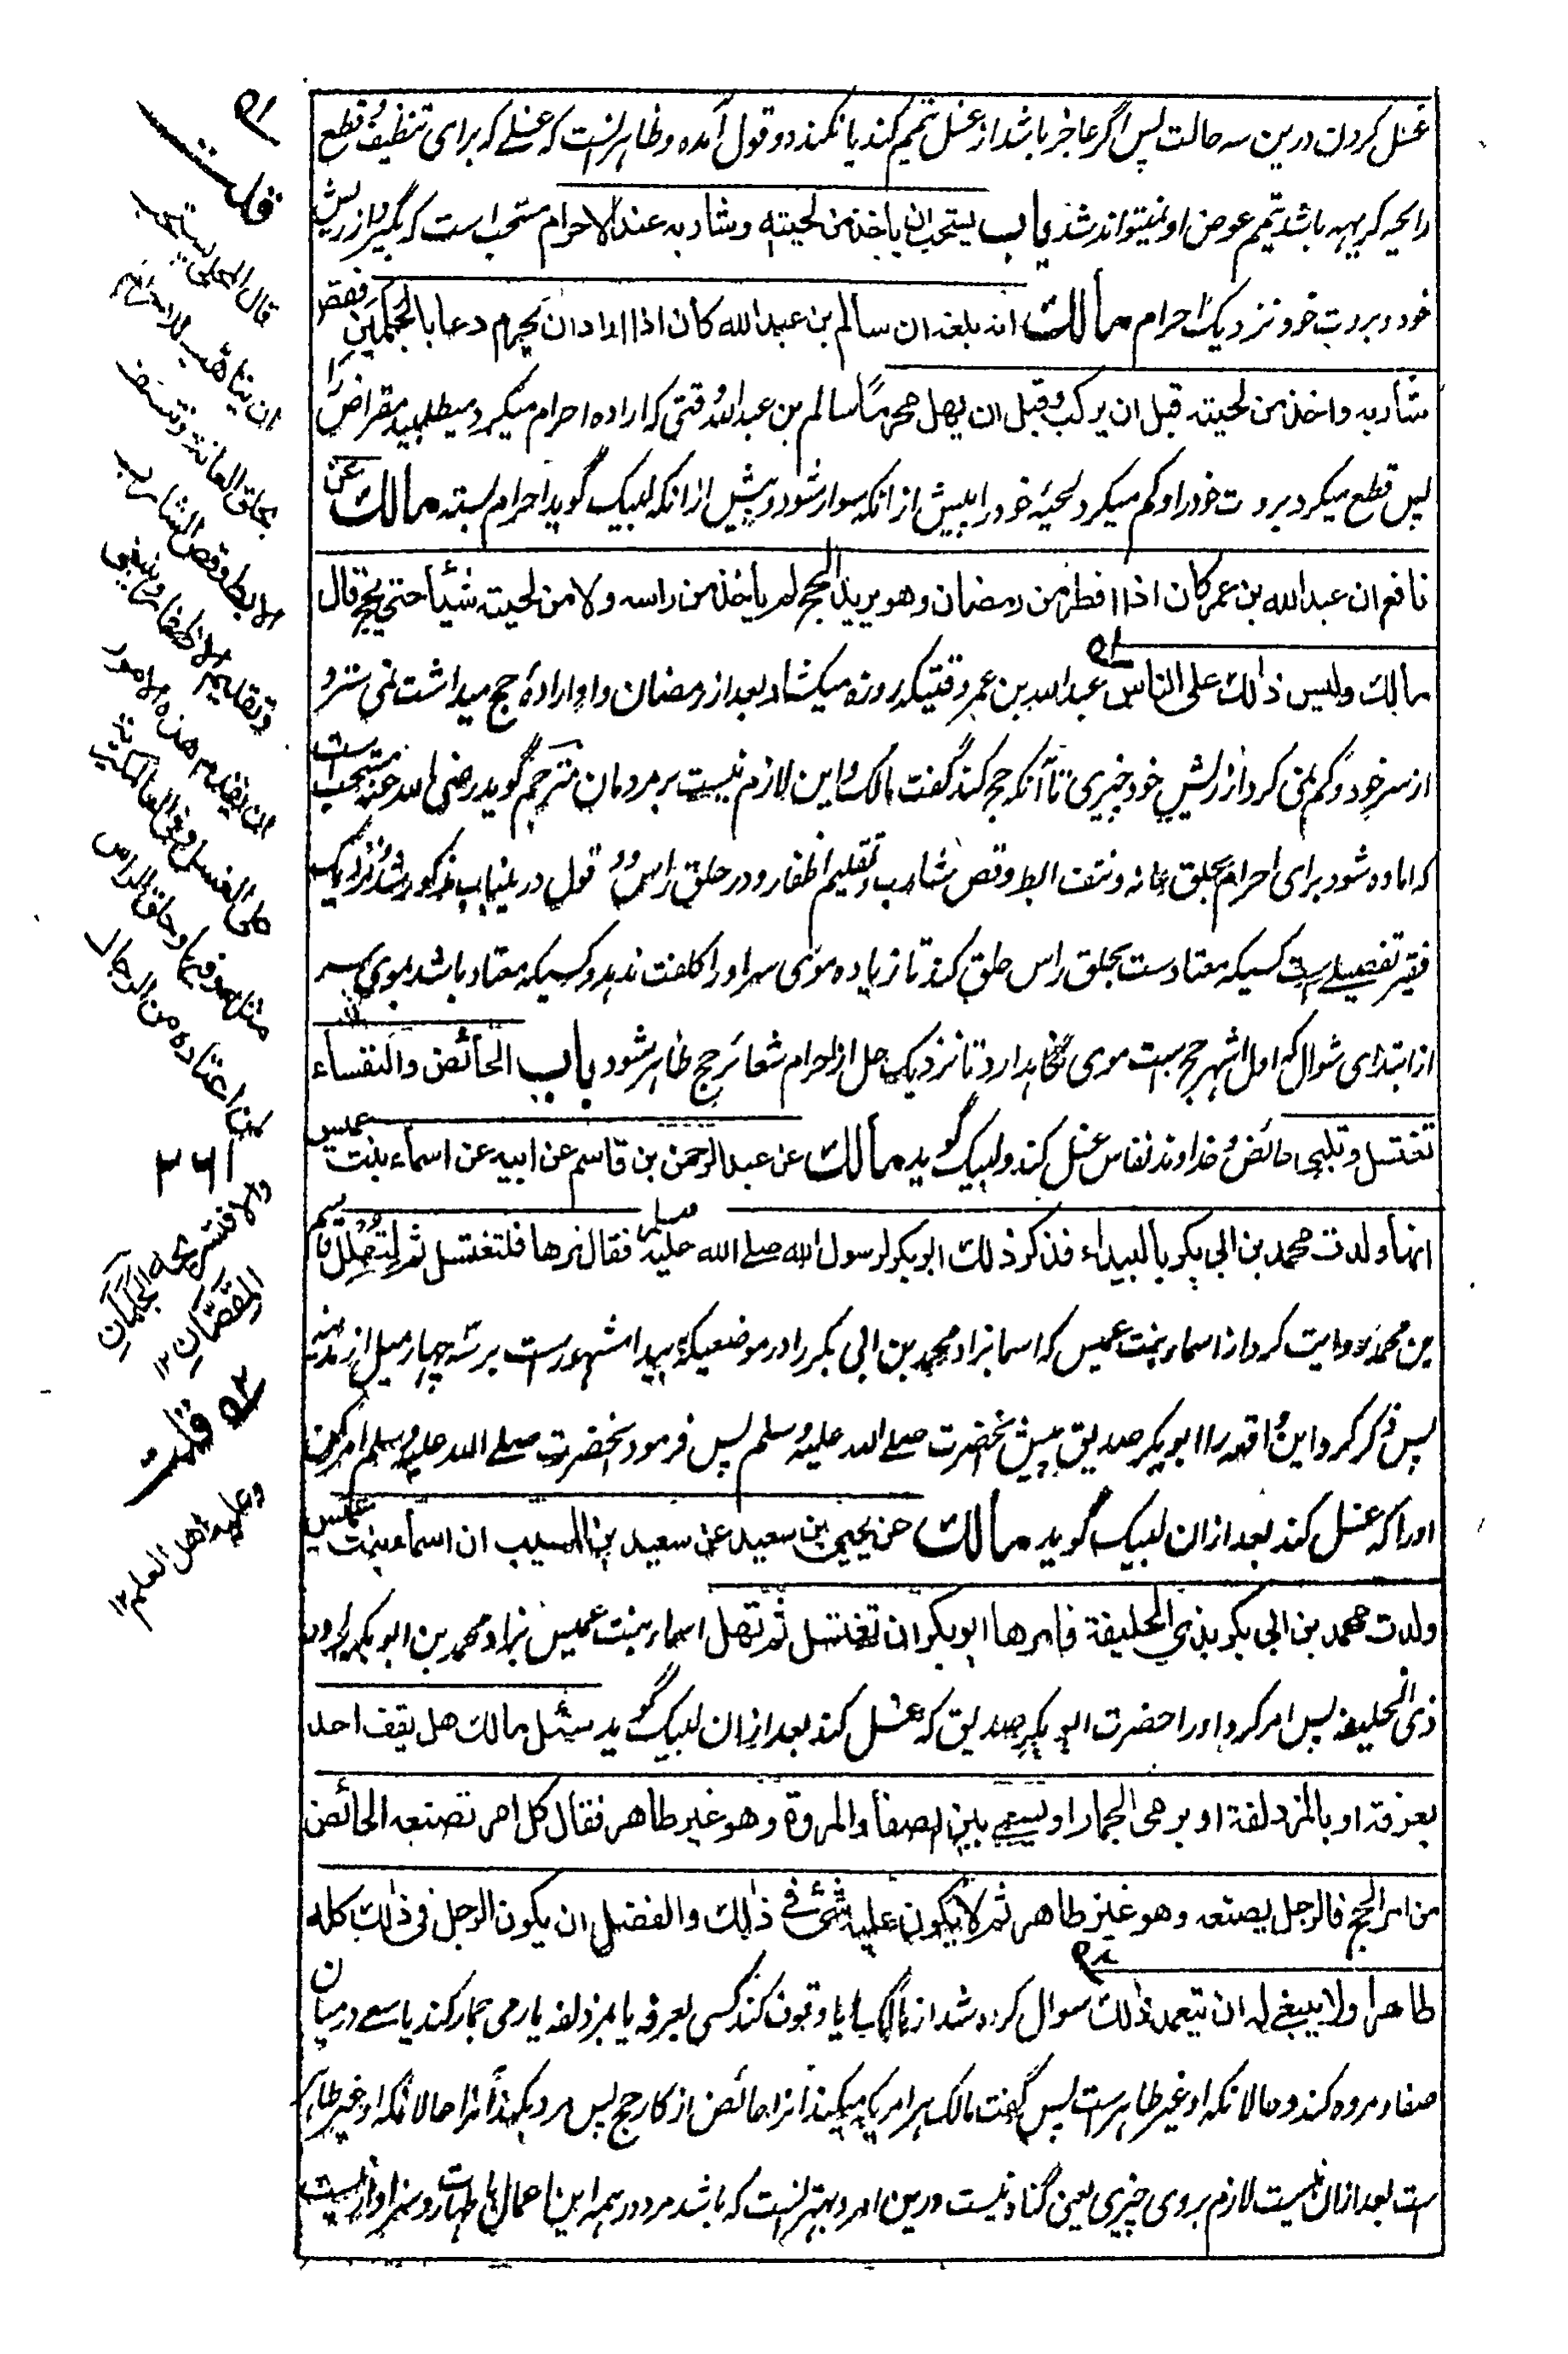 غسل کردن درین سه حالت پس اگر عاجز باشد از غسل تیمم کند یا نکند دو قول آمده و ظاهر آنست که غسلے که برای تنظیف و قطع
رایحه کریهه باشد تیمم عوض او نمیتواند شد باب یستحب ان یاخذ من لحیته وشاربه عند الاحرام مستحب است که بگیرد از ریش
خود و بروت خود نزدیک احرام مالك انه بلغه ان سالم بن عبد الله كان اذا اراد ان يحرم دعا بالجلمين فقص
شاربه واخذ من لحيته قبل ان يركب وقبل ان يهل محرما سالم بن عبد الله وقتی که اراده احرام میکرد میطلبید مقراض را
پس قطع میکرد بروت خود را و کم میکرد لحیهٔ خود را پیش از انکه سوار شود و پیش از انکه لبیک گوید احرام بسته مالك عن
نافع ان عبد الله بن عمر كان اذا افطر من رمضان وهو يريد الحج لم ياخذ من راسه ولا من لحيته شيئا حتى يحج قال
مالك وليس ذلك على الناس عبد الله بن عمر وقتیکه روزه میکشاد بعد از رمضان و او ارادهٔ حج میداشت نمی سترد
از سر خود و کم نمی کرد از ریش خود چیزی تا آنکه حج کند گفت مالک و این لازم نیست بر مردمان مترجم گوید رضی الله عنه مستحب است
که اماده شود برای احرام بحلق عانه و نتف ابط و قص شارب و تقلیم اظفار و در حلق راس دو قول درینباب مذکور شد و نزدیک
فقیر تفصیلے است کسیکه معتاد ست بحلق راس حلق کند تا زیاده موی سر او را کلفت ندهد و کسیکه معتاد باشد بموی سر
از ابتدای شوال که اول اشهر حج ست موی نگاهدارد تا نزدیک حل از احرام شعائر حج ظاهر شود باب الحائض والنفساء
تغتسل وتلبى حائض و خداوند نفاس غسل کند و لبیک گوید مالك عن عبد الرحمن بن قاسم عن ابيه عن اسماء بنت عميس
انها ولدت محمد بن ابي بكر بالبيداء فذكر ذلك ابو بكر لرسول الله صلے الله عليه وسلم فقال مرها فلتغتسل ثم لتهلل قاسم
بن محمد روایت کرد از اسماء بنت عمیس که اسما بزاد محمد بن ابی بکر را در موضعیکه ببیدا مشهور ست بر سه چهار میل از مدینه
پس ذکر کرد این واقعه را ابو بکر صدیق پیش آنحضرت صلے الله علیه وسلم پس فرمود آنحضرت صلے الله علیه وسلم امر کن
اورا که غسل کند بعد ازان لبیک گوید مالك عن يحيى بن سعيد عن سعيد بن المسيب ان اسماء بنت عميس
ولدت محمد بن ابي بكر بذي الحليفة فامرها ابو بكر ان تغتسل ثم تهل اسماء بنت عمیس بزاد محمد بن ابو بکر را در
ذی الحلیفه پس امر کرد اورا حضرت ابو بکر صدیق که غسل کند بعد ازان لبیک گوید سئل مالك هل يقف احد
بعرفة او بالمزدلفة او يرمي الجمار او يسعے بين الصفا والمروة وهو غير طاهر فقال كل امر تصنعه الحائض
من امر الحج فالرجل يصنعه وهو غير طاهر ثم لا يكون عليه شئ في ذلك والفضل ان يكون الرجل في ذلك كله
طاهرا ولا ينبغے له ان يتعمد ذلك سوال کرده شد از مالک آیا وقوف کند کسی بعرفه یا بمزدلفه یا رمی جمار کند یا سعے درمیان
صفا و مروه کند و حالانکه او غیر طاهر ست پس گفت مالک هر امریکه میکند آنرا حائض از کار حج پس مرد بکند آنرا حالانکه او غیر طاهر
ست بعد ازان نیست لازم بروی چیزی یعنی گناه نیست درین امر و بهتر آنست که باشد مرد در همه این اعمال با طهارت و سزاوار نیست
قلت
قال المحلى يستحب
ان يتاهب للاحرام
بحلق العانة ونتف
الابط وقص الشارب
وتقليم الاظفار وينبغى
ان يقدم هذه الامور
على الغسل وفى العالمگيرية
مثل هذا فيها وحلق الراس
لمن اعتاده من الرجال
والا فتسريحه الجلمان
المقصان ١٢
قلت
وعليه اهل العلم ١٢